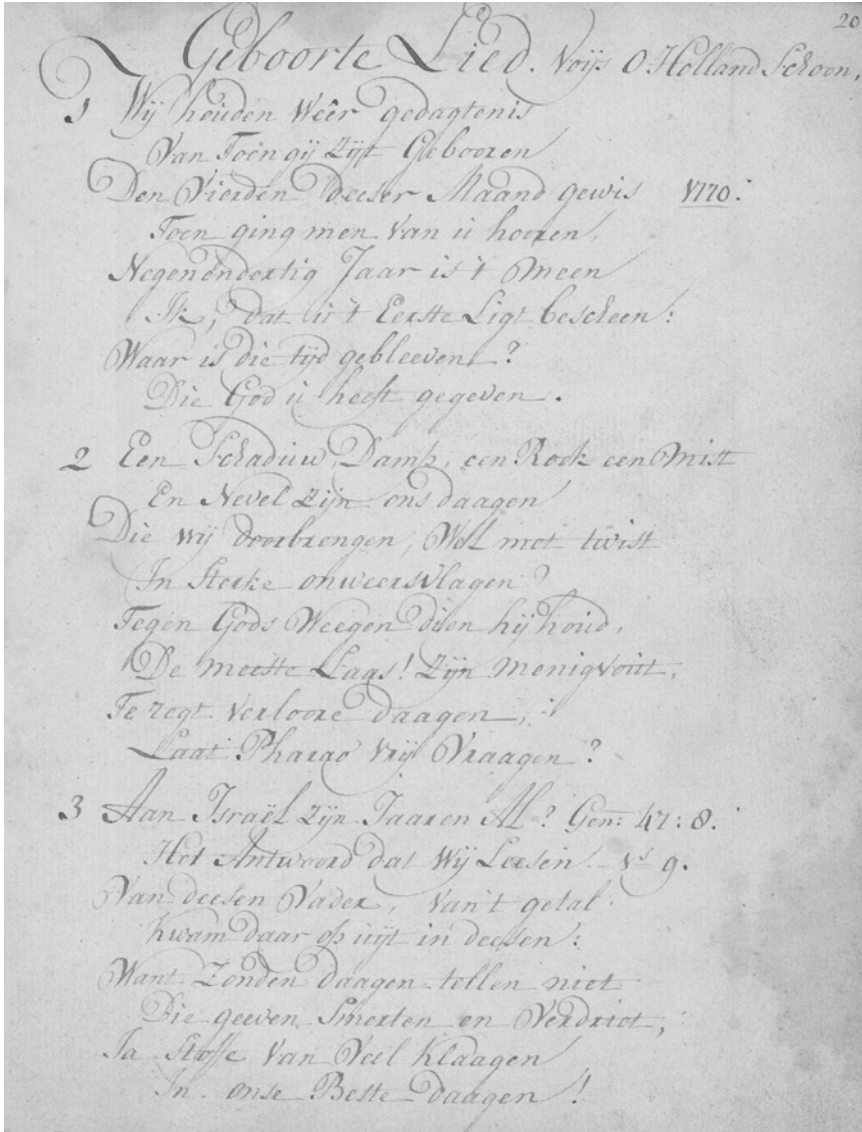 20
Geboorte Lied. Voijs O Holland Schoon,
1 Wij houden Weêr gedagtenis
Van Toen gij Zijt Gebooren
Den Vierden deeser Maand gewis 1770.
Toen ging men Van u hooren,
Negenendertig Jaar is 't Meen
Ik, dat u 't Eerste Ligt bescheen!
Waar is die tijd gebleeven ?
Die God u heeft gegeven .
2 Een Schaduw, Damp, een Rook een Mist
En Nevel Zijn ons daagen
Die wij doorbrengen, Wel met twist
In Sterke onweersvlagen ?
Tegen Gods Weegen dien hij houd,
De meeste Laas! Zijn Menigvout,
Te regt Verloore daagen,
Laat Pharao Vrij Vraagen ?
3 Aan Israël Zijn Jaaren Al? Gen: 47: 8.
Het Antwoord dat Wij Leesen Vs 9.
Van deesen Vader, Van 't getal
Kwam daar op uijt in deesen:
Want Zonden daagen tellen niet
Die geeven Smerten en Verdriet,
Ja Stoffe Van Veel Klaagen
In onse Beste daagen !